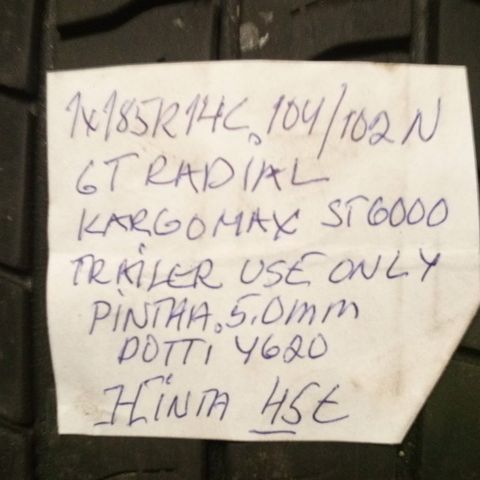 1x185R14C. 104/102N
GT RADIAL
KARGOMAX ST6000
TRAiLER USE ONLY
PiNTAA. 5.0mm
DOTTi 4620
HiNTA 45€